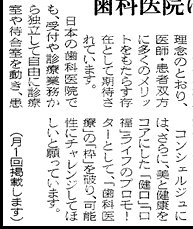 歯科医院に
理念のとおり、
医師・患者双方
に多くのメリッ
トをもたらす存
在として期待さ
れています。
日本の歯科医院で
も、受付や診療業務か
ら独立して自由に診療
室や待合室を動き、患
コンシェルジュに
は、さらに、美と健康を
コアにした「健口」「口
福」ライフのプロモー
ターとして、「歯科医
療」の“枠”を破り、可能
性にチャレンジしてほ
しいと願っています。
（月1回掲載します）